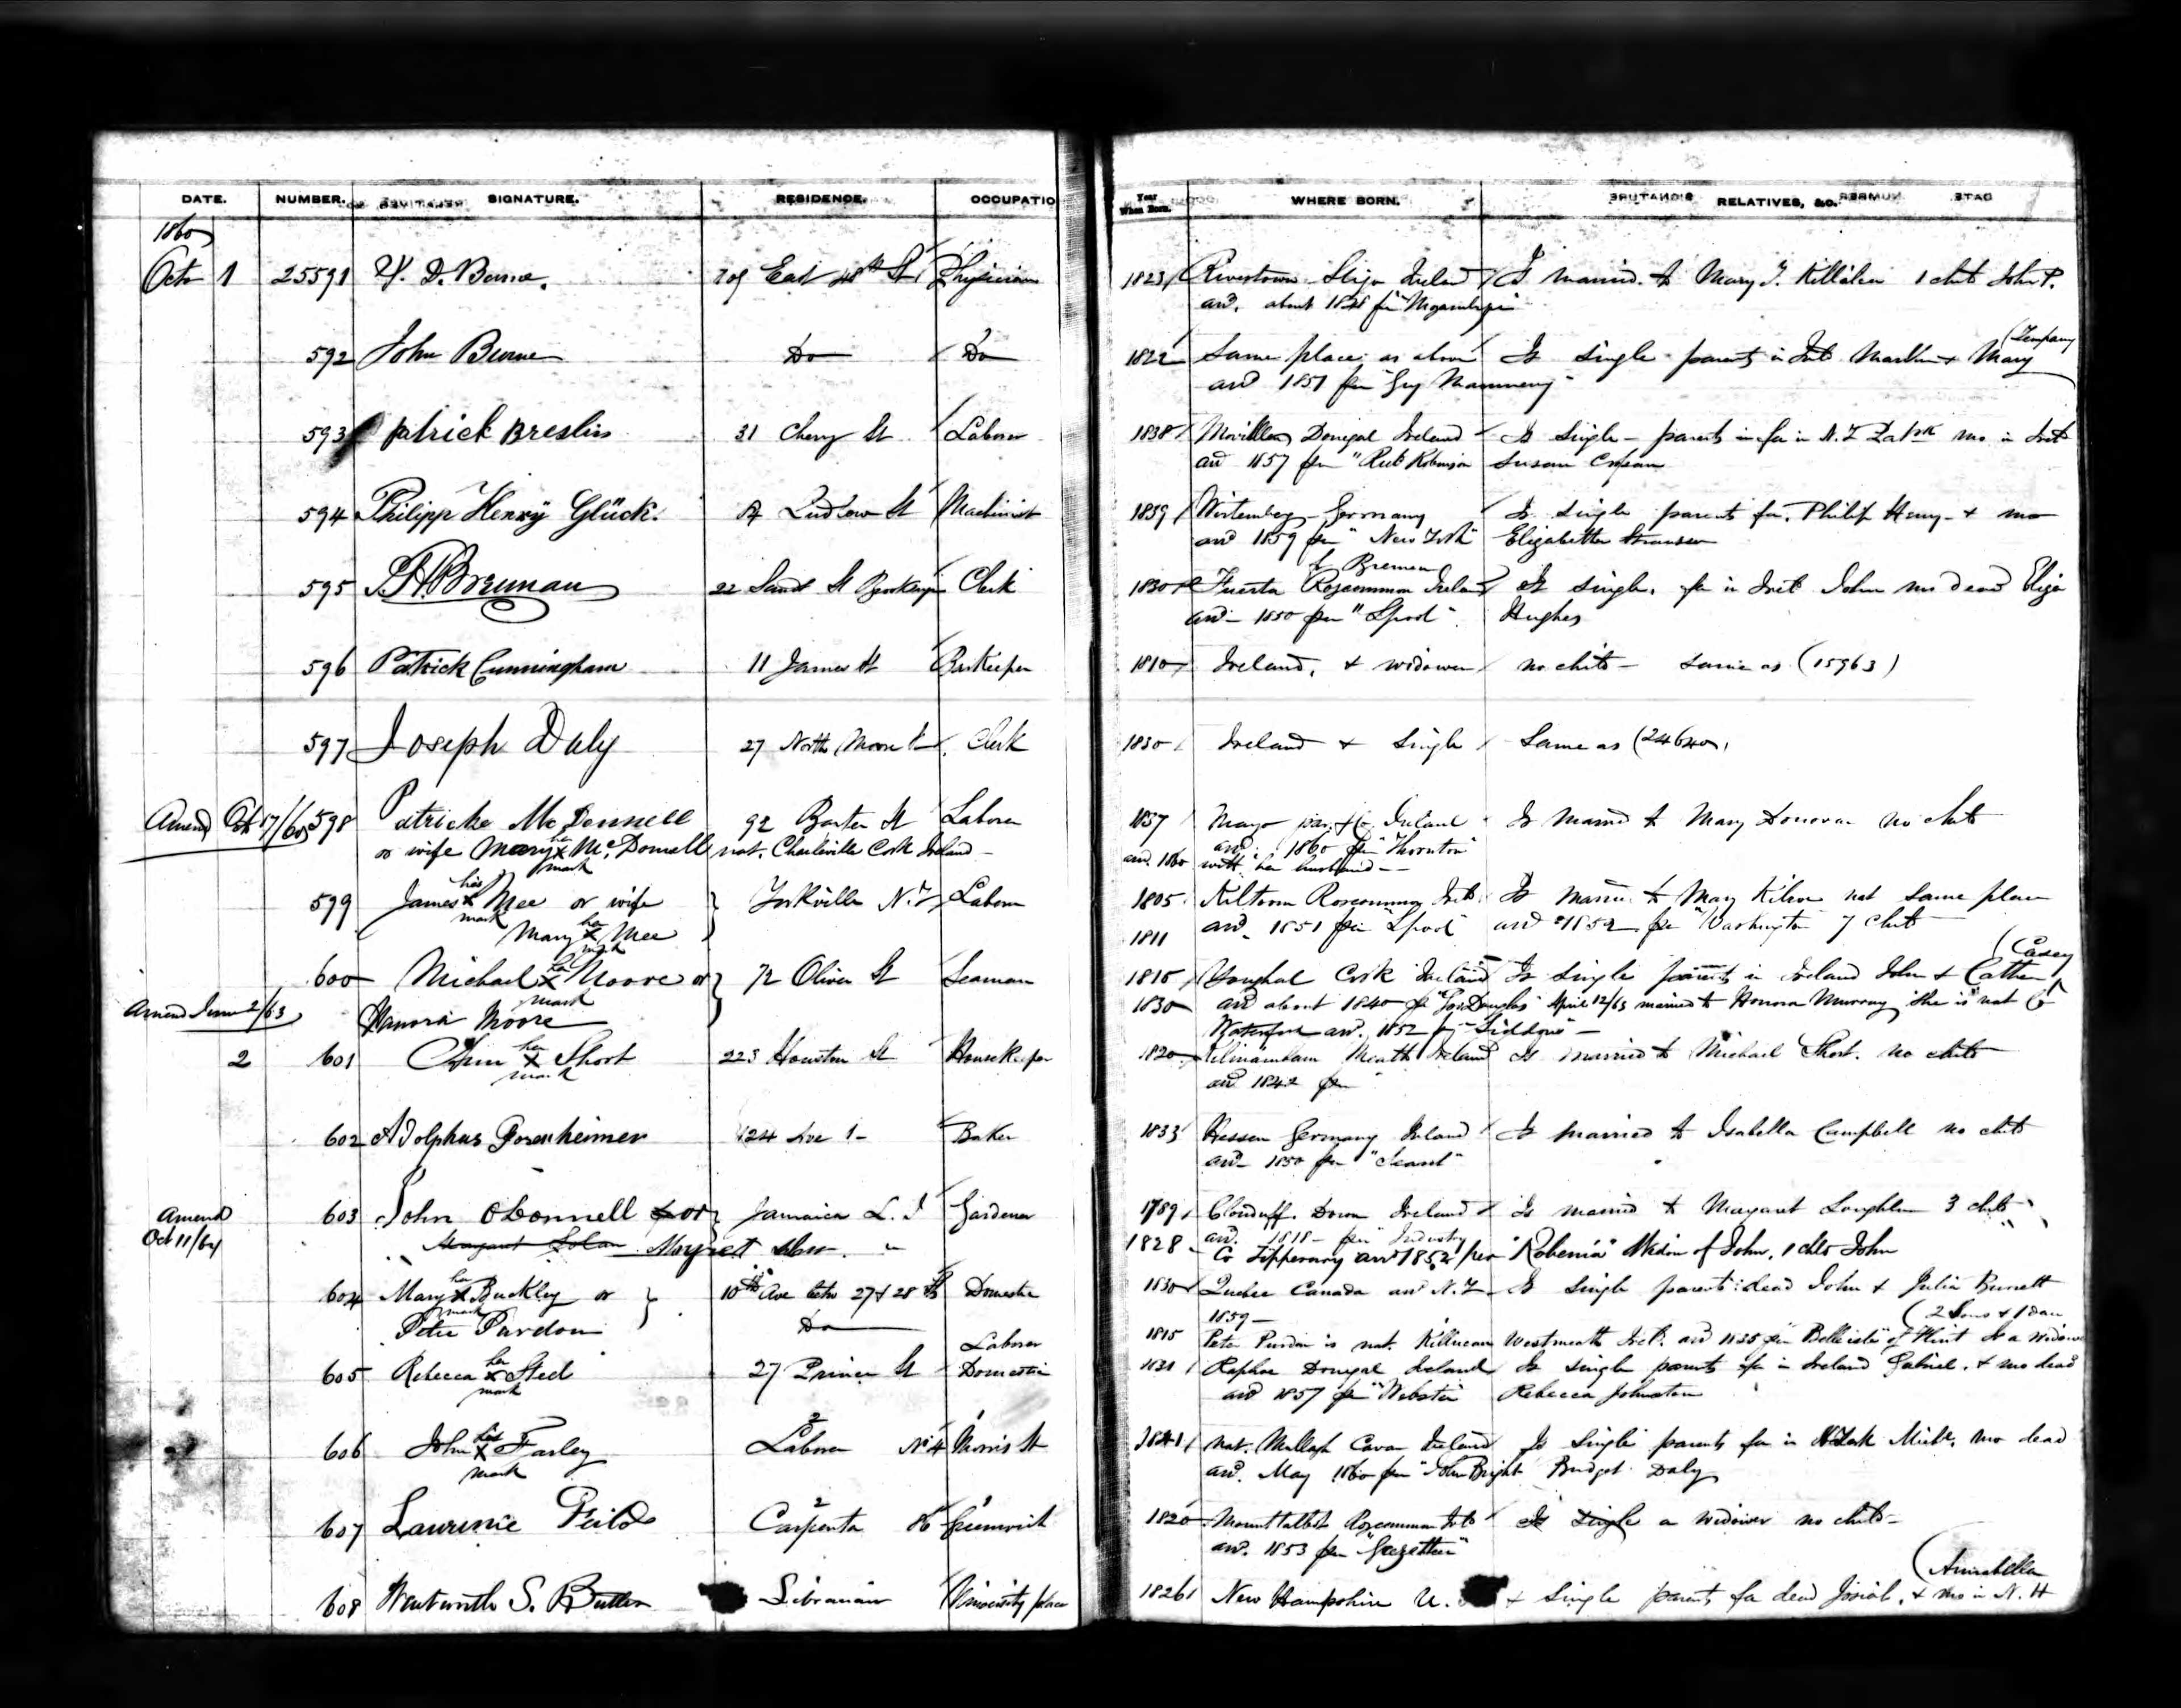 DATE. NUMBER. SIGNATURE. RESIDENCE. OCCUPATIO Year When Born. WHERE BORN. RELATIVES, &c.
1860
Octo 1 25591 D. Burne. 209 East 48th St Physician 1823 Riverstown Sligo Ireland Is married to Mary J. 1 child John P.
arr. about 1848 per
592 John Burne Do Do 1822 Same place as above Is single parents in Irel Martin & Mary (Tempany
arr 1851 per "Guy Mannering"
593 Patrick Breslin 31 Cherry St Laborer 1838 Moville Donegal Ireland Is single - parents fa in N.Y. Patrk mo in Irel
arr 1857 per " Robinson Susan
594 Philipp Henry Glück. Ludlow St Machinist 1839 Wirtemberg Germany Is single parents fa. Philip Henry & mo
arr 1859 per "New York" Elizabetha
fr Bremen
595 Brennan 22 Sands St Brooklyn Clerk 1830 Fuerta Roscommon Ireland Is single. fa in Irel John mo dead Eliza
arr 1850 per "Lpool". Hughes
596 Patrick Cunningham 11 James St Barkeeper 1810 Ireland, & widower no child - same as (15963)
597 Joseph Daly 27 North Moore St Clerk 1830 Ireland & Single Same as (24640)
Amend Oct 17/60 598 Patricke McDonnell 92 Baxter St Laborer 1837 Mayo Ireland Is married to Mary Donovan no child
arr. 1860 per "Thornton"
or wife Mary her x mark McDonnell nat. Charleville Cork Ireland arr. 1860 with her husband
599 James his x mark Mee or wife Yorkville N.Y. Laborer 1805 Kiltoom Roscommon Irel. Is married to Mary Kilroe nat same place
Mary her x mark Mee 1811 arr. 1851 per "Lpool" arr 1852 per "Washington" 7 child
600 Michael his x mark Moore or 72 Oliver St Seaman 1815 Youghal Cork Ireland Is single parents in Ireland John & Cathe (Casey
Amend June 2/63 Hanora Moore 1830 arr about 1840 per Douglas" April 12/63 married to Honora Murray she is nat Co
Waterford arr. 1852 per "Siddons"
2 601 Ann her x mark Short 223 Houston St Housekeeper 1820 Meath Ireland Is married to Michael Short. no child
arr 1842 per "
602 Adolphus 124 Ave 1 Baker 1833 Hessen Germany Ireland Is married to Isabella Campbell no child
arr 1850 per
Amend 603 John ODonnell or Jamaica L.I Gardener 1789 Clonduff. Down Ireland Is married to Margaret Loughlin 3 child
arr. 1818 per "Industry"
Oct 11/64 Margaret 1828 Co Tipperary arr 1852 per "Robenia" Widow of John. 1 child John
604 Mary her x mark Buckley or 10th Ave betw 27 & 28 St Domestic 1830 Quebec Canada arr N.Y. Is single parents dead John & Julia Burnett
1859 (2 Sons & 1 dau
Peter Purdon Do Laborer 1815 Peter Purdon is nat. Killucan Westmeath Irel. arr 1835 per Is a widower
605 Rebecca her x mark Steel 27 Prince St Domestic 1831 Raphoe Donegal Ireland Is single parents fa in Ireland Gabriel. & mo dead
arr 1857 per "Webster" Rebecca Johnston
606 John his x mark Farley 2 Laborer No 4 1 Morris St 1841 nat. Mullagh Cavan Ireland Is single parents fa in Michl. mo dead
arr. May 1860 per "John Bright Bridget Daly
607 Lawrence Feild 2 Carpenter 86 1 Greenwich 1820 Mount Talbot Roscommon Irel Is single a widower no child
arr. 1853 per "Gazetteer"
608 Wentworth S. Butler Librarian University place 1826 New Hampshire U. & single parents fa dead Josiah. & mo in N. H